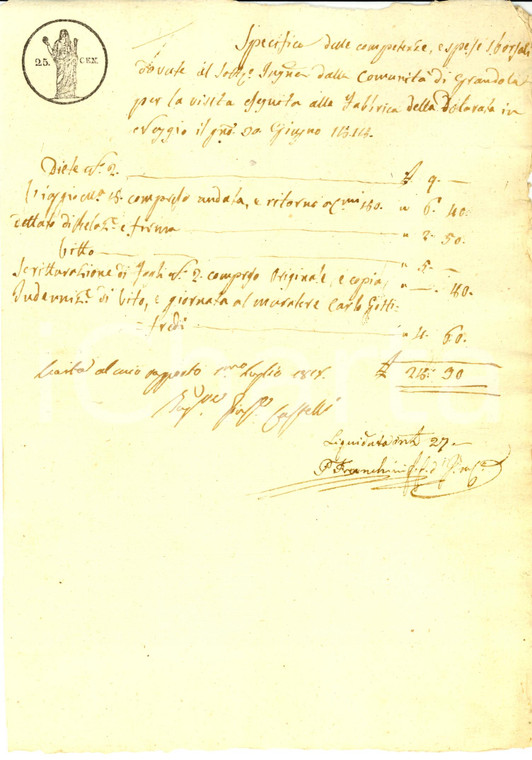 25. CEN.
Specifica delle competenze, e spese sborsate
dovute al Sott.º Ingnre dalla Comunità di Grandola
per la visita eseguita alla Fabbrica della Dolorata in
il 30 Giugno 1818.
Diete nº 2. £ 9.—
Viaggio 18. compreso andata, e ritorno " 6. 40.
dettato di Relaz.e e firma " 2. 50.
Vitto " 5.—
Scritturazione di fogli nº 2. compreso Originale, e copia " —. 80.
Indenniz.e di vito, e giornata al muratore Carlo Gotti-
=fredi " 4. 60.
£ 28. 30
Luglio 1818.
Ing.re Cappelli
Liquidata in £ 27—
P. Franchini